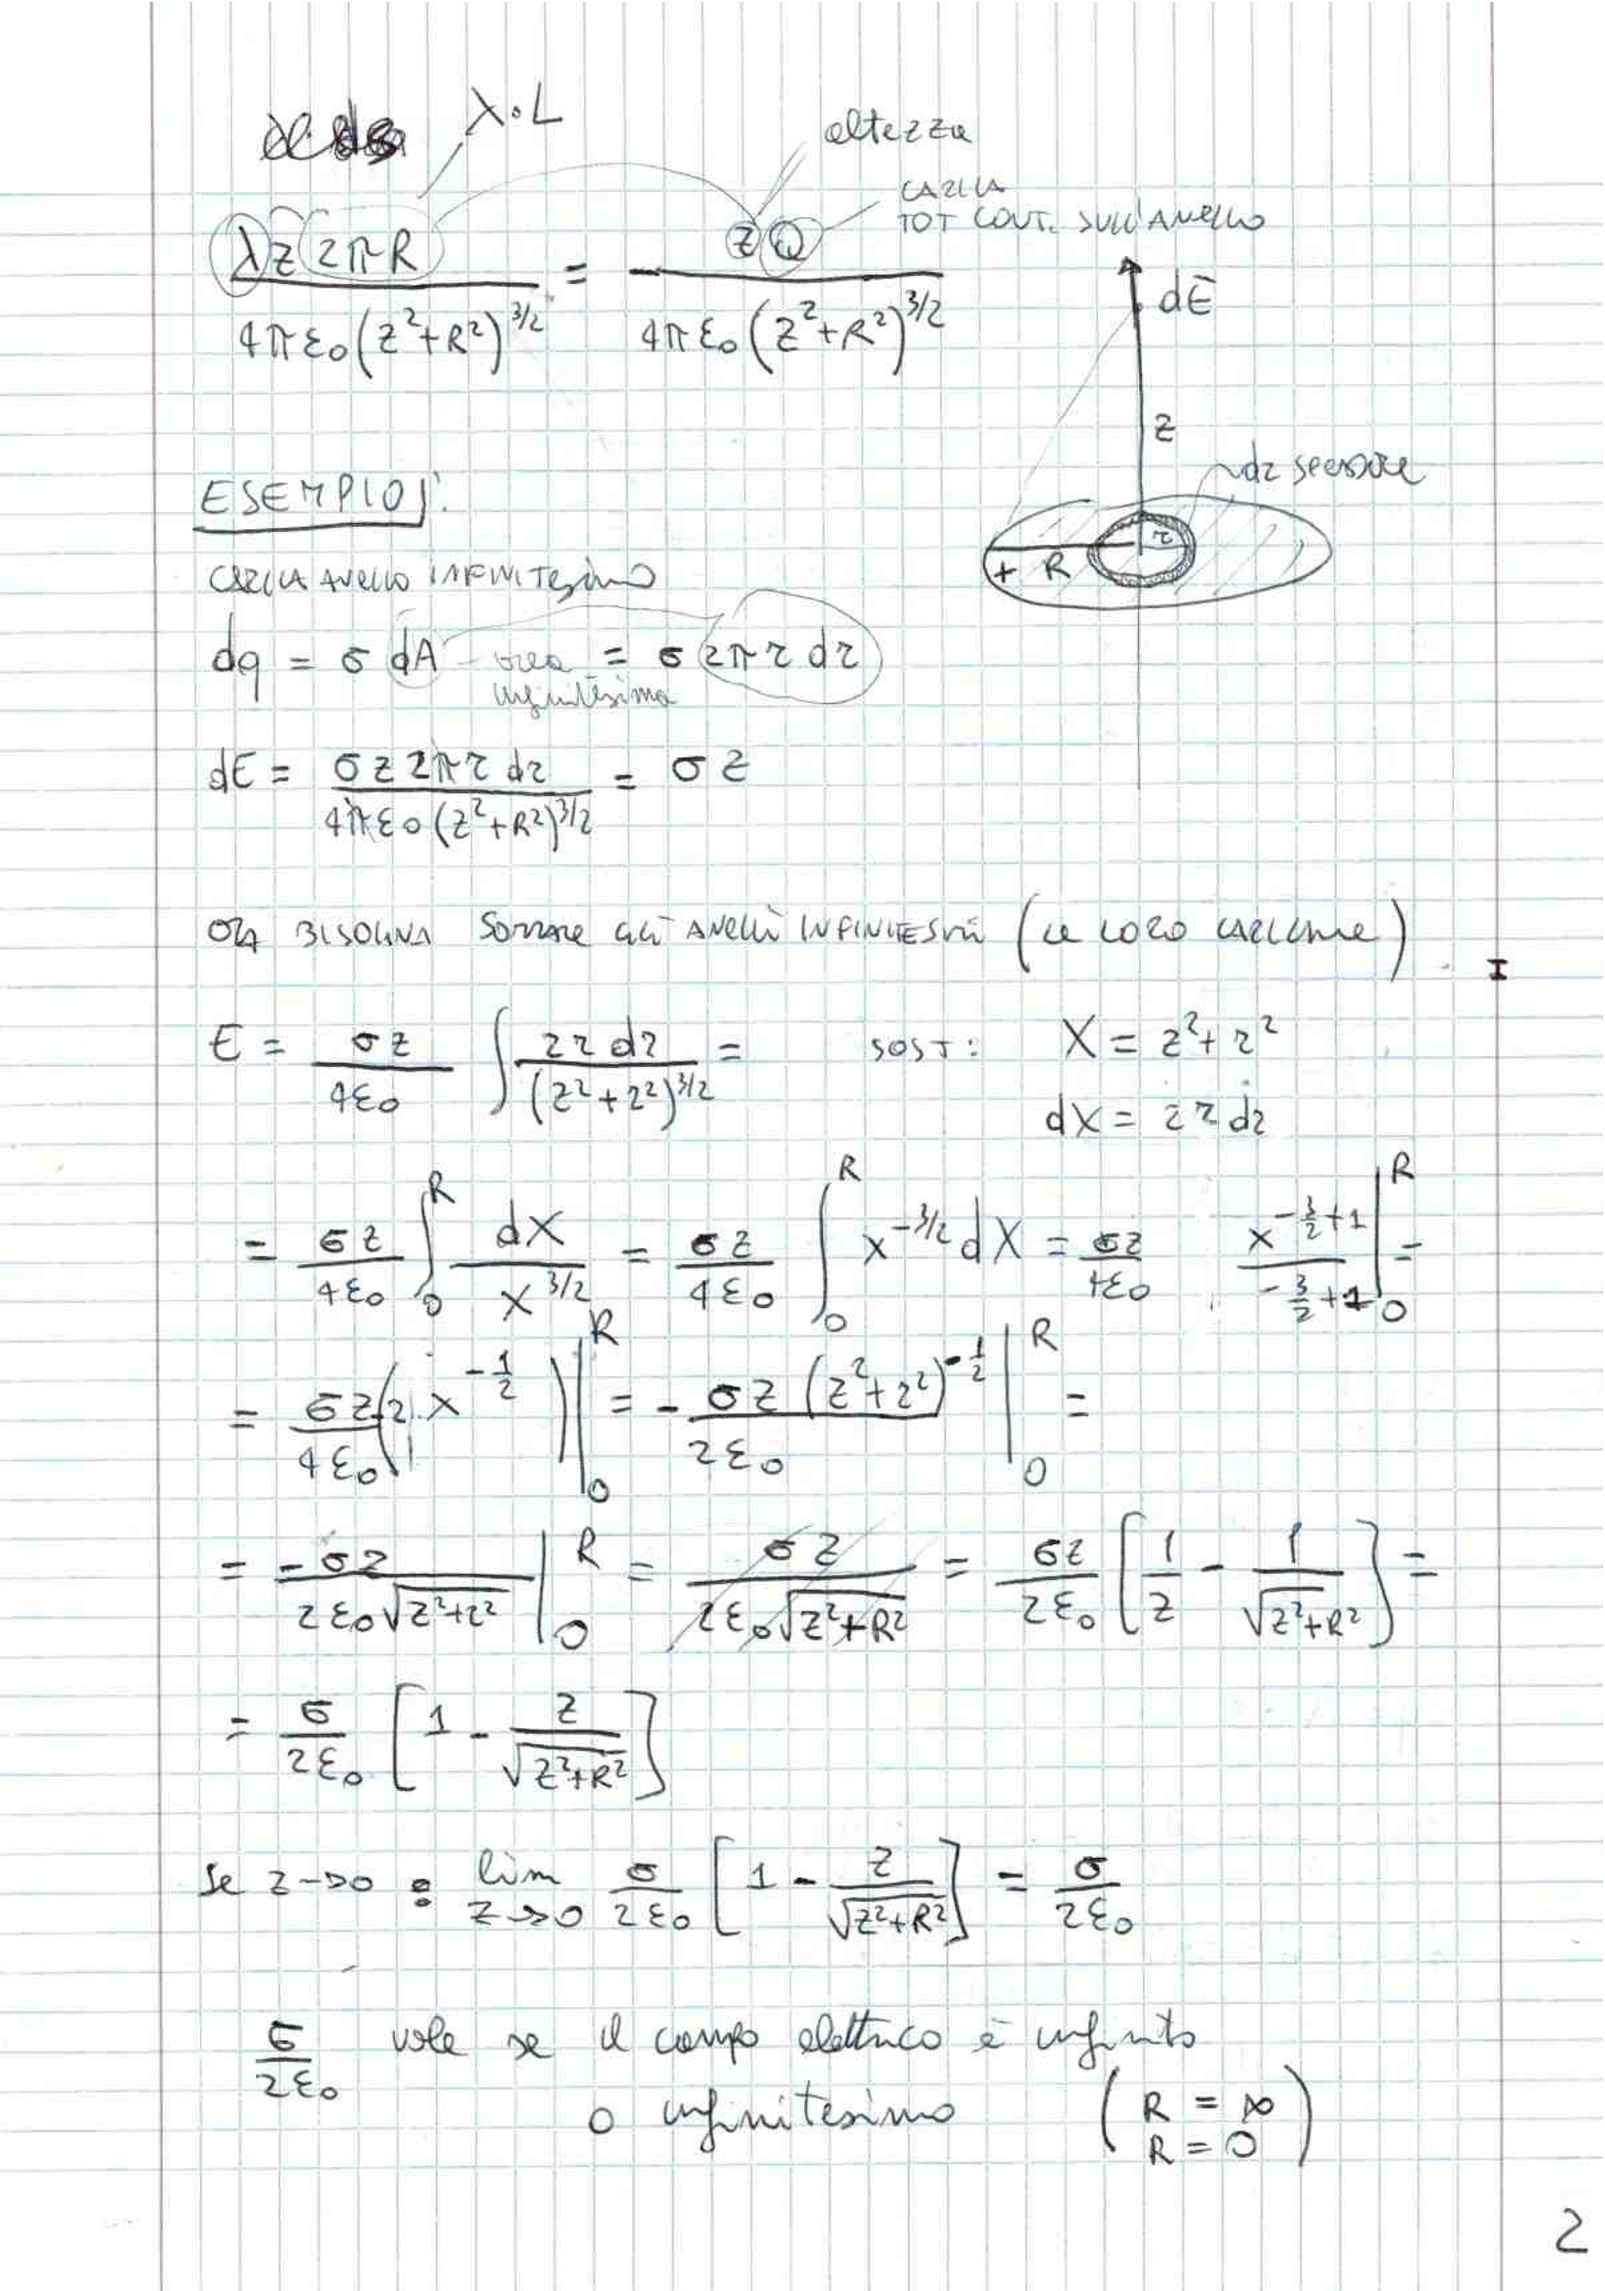 λ·L
altezza
CARICA
TOT CONT. SULL'ANELLO
λ z 2πR / 4πε₀(z²+R²)^3/2 = z Q / 4πε₀(z²+R²)^3/2
dE
z
dr spessore
r
+ R
ESEMPIO:
CARICA ANELLO INFINITESIMO
dq = σ dA - area infinitesima = σ 2πr dr
dE = σ z 2πr dr / 4πε₀(z²+R²)^3/2 = σ z
ORA BISOGNA SOMMARE GLI ANELLI INFINITESIMI (LE LORO CARICHE)
E = σz / 4ε₀ ∫ 2r dr / (z²+r²)^3/2 = SOST: X = z²+r²
dX = 2r dr
= σz / 4ε₀ ∫₀^R dX / X^3/2 = σz / 4ε₀ ∫₀^R x^-3/2 dX = σz / 4ε₀ x^(-3/2+1) / (-3/2+1) |₀^R =
= σz / 4ε₀ (-2 · x^-1/2) |₀^R = - σz (z²+r²)^-1/2 / 2ε₀ |₀^R =
= -σz / 2ε₀√z²+r² |₀^R = σz / 2ε₀√z²+R² = σz / 2ε₀ [1/z - 1/√z²+R²] =
= σ / 2ε₀ [1 - z/√z²+R²]
Se z→0 : lim z→0 σ/2ε₀ [1 - z/√z²+R²] = σ/2ε₀
σ/2ε₀ vale se il campo elettrico è infinito
o infinitesimo (R = ∞
R = 0)
2